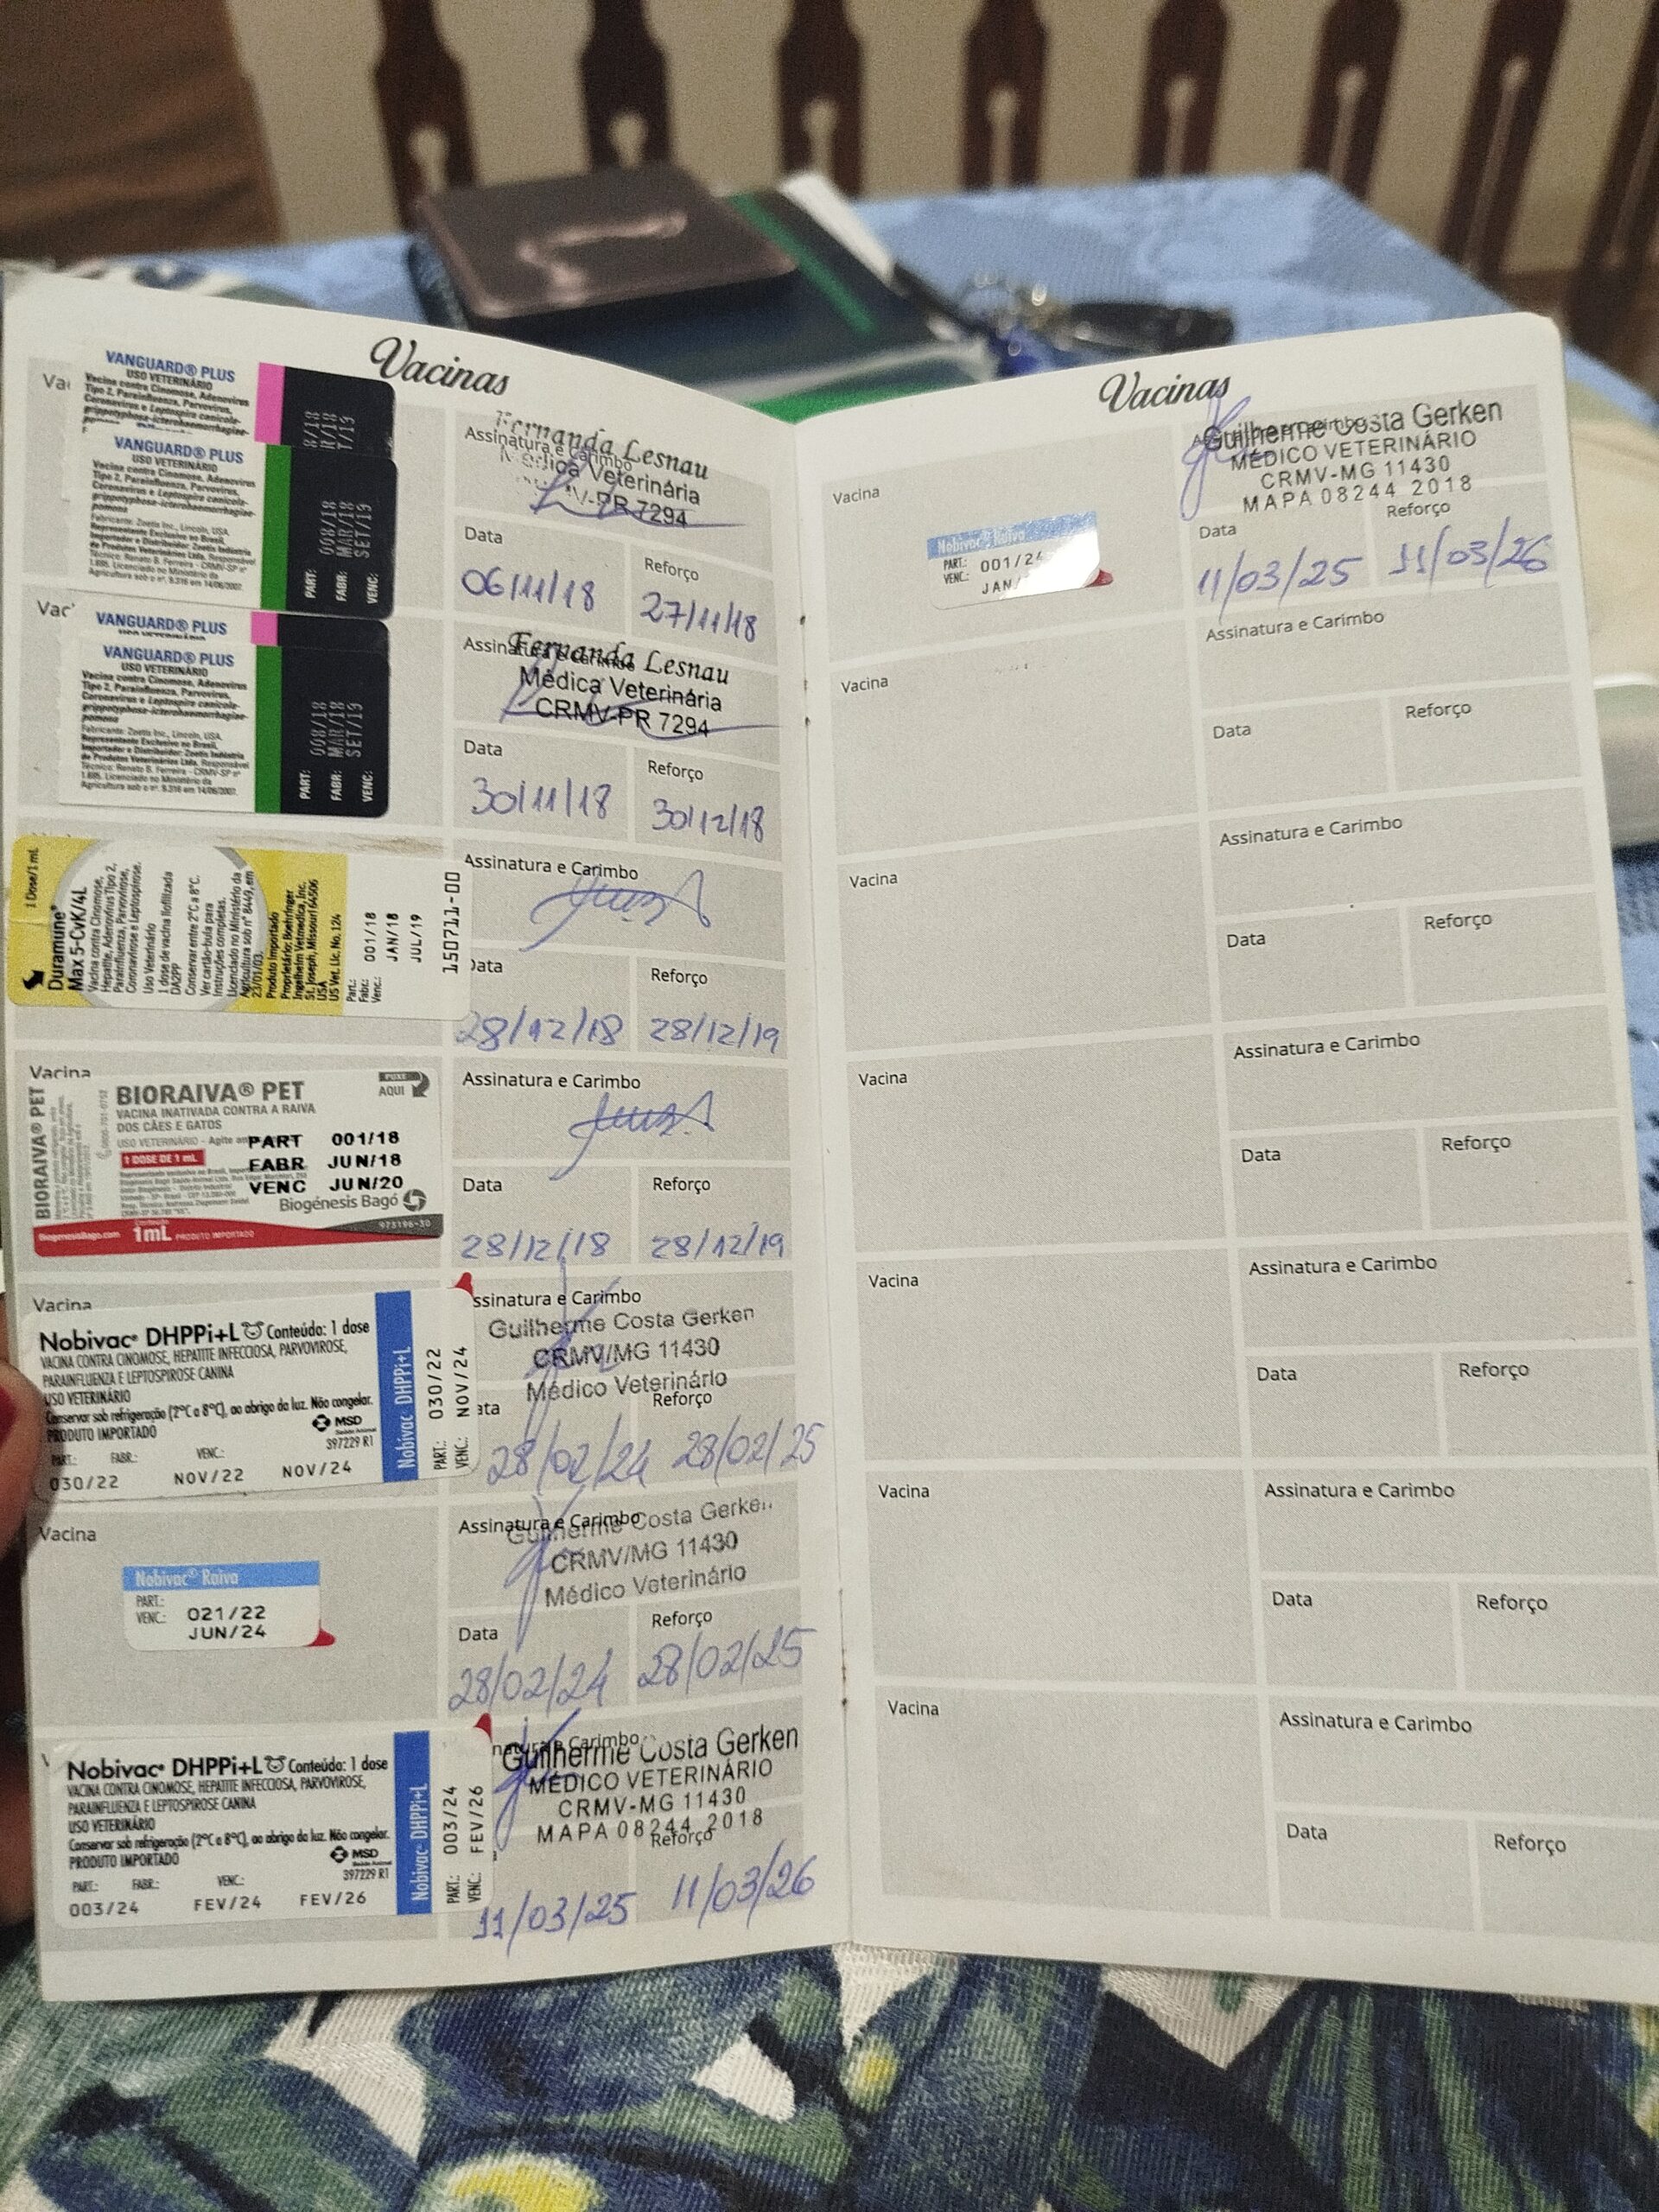 Vacinas
VANGUARD® PLUS
USO VETERINÁRIO
Vacina contra Cinomose, Adenovírus
Tipo 2, Parainfluenza, Parvovírus,
Coronavírus e Leptospira canicola-
grippotyphosa-icterohaemorrhagiae-
8/18
R/18
T/19
VANGUARD® PLUS
USO VETERINÁRIO
Vacina contra Cinomose, Adenovírus
Tipo 2, Parainfluenza, Parvovírus,
Coronavírus e Leptospira canicola-
grippotyphosa-icterohaemorrhagiae-
pomona
Fabricante: Zoetis Inc., Lincoln, USA.
Representante Exclusivo no Brasil,
Importador e Distribuidor: Zoetis Indústria
de Produtos Veterinários Ltda, Responsável
Técnico: Renato B. Ferreira - CRMV-SP nº
1.695. Licenciado no Ministério da
Agricultura sob o nº. 9.316 em 14/06/2007.
PART: 008/18
FABR: MAR/18
VENC: SET/19
Fernanda Lesnau
Assinatura e Carimbo
Médica Veterinária
PR 7294
Data
Reforço
06/11/18
27/11/18
VANGUARD® PLUS
VANGUARD® PLUS
USO VETERINÁRIO
Vacina contra Cinomose, Adenovírus
Tipo 2, Parainfluenza, Parvovírus,
Coronavírus e Leptospira canicola-
grippotyphosa-icterohaemorrhagiae-
pomona
Fabricante: Zoetis Inc., Lincoln, USA.
Representante Exclusivo no Brasil,
Importador e Distribuidor: Zoetis Indústria
de Produtos Veterinários Ltda, Responsável
Técnico: Renato B. Ferreira - CRMV-SP nº
1.695. Licenciado no Ministério da
Agricultura sob o nº. 9.316 em 14/06/2007.
PART: 008/18
FABR: MAR/18
VENC: SET/19
Fernanda Lesnau
Médica Veterinária
CRMV-PR 7294
Data
Reforço
30/11/18
30/12/18
1 Dose/1 mL
Duramune®
Max 5-CvK/4L
Vacina contra Cinomose,
Hepatite, Adenovírus Tipo 2,
Parainfluenza, Parvovirose,
Coronavirose e Leptospirose.
Uso Veterinário
1 dose de vacina liofilizada
DA2PP
Conservar entre 2°C a 8°C.
Ver cartão-bula para
instruções completas.
Licenciado no Ministério da
Agricultura sob n° 8449, em
23/01/03.
Produto Importado
Proprietário: Boehringer
Ingelheim Vetmedica, Inc.
St. Joseph, Missouri 64506
USA
US Vet. Lic. No. 124
Part.: 001/18
Fabr.: JAN/18
Venc.: JUL/19
150711-00
Assinatura e Carimbo
Data
Reforço
28/12/18
28/12/19
Vacina
BIORAIVA® PET
BIORAIVA® PET
PUXE
AQUI
VACINA INATIVADA CONTRA A RAIVA
DOS CÃES E GATOS
USO VETERINÁRIO - Agite
1 DOSE DE 1 mL
PART 001/18
FABR JUN/18
VENC JUN/20
Biogénesis Bagó
973196-30
BiogenesisBago.com
1mL PRODUTO IMPORTADO
Assinatura e Carimbo
Data
Reforço
28/12/18
28/12/19
Vacina
Nobivac® DHPPi+L Conteúdo: 1 dose
VACINA CONTRA CINOMOSE, HEPATITE INFECCIOSA, PARVOVIROSE,
PARAINFLUENZA E LEPTOSPIROSE CANINA
USO VETERINÁRIO
Conservar sob refrigeração (2°C a 8°C), ao abrigo da luz. Não congelar.
PRODUTO IMPORTADO
MSD
Saúde Animal
397229 R1
PART.: FABR.: VENC.:
030/22 NOV/22 NOV/24
Nobivac DHPPi+L
PART.: 030/22
VENC.: NOV/24
ssinatura e Carimbo
Guilherme Costa Gerken
CRMV/MG 11430
Médico Veterinário
ata
Reforço
28/02/24
28/02/25
Vacina
Nobivac® Raiva
PART.: 021/22
VENC.: JUN/24
Assinatura e Carimbo
Guilherme Costa Gerken
CRMV/MG 11430
Médico Veterinário
Data
Reforço
28/02/24
28/02/25
Nobivac® DHPPi+L Conteúdo: 1 dose
VACINA CONTRA CINOMOSE, HEPATITE INFECCIOSA, PARVOVIROSE,
PARAINFLUENZA E LEPTOSPIROSE CANINA
USO VETERINÁRIO
Conservar sob refrigeração (2°C a 8°C), ao abrigo da luz. Não congelar.
PRODUTO IMPORTADO
MSD
Saúde Animal
397229 R1
PART.: FABR.: VENC.:
003/24 FEV/24 FEV/26
Nobivac DHPPi+L
PART.: 003/24
VENC.: FEV/26
Guilherme Costa Gerken
MÉDICO VETERINÁRIO
CRMV-MG 11430
MAPA 08244 2018
Reforço
11/03/25
11/03/26
Vacinas
Vacina
Nobivac® Raiva
PART.: 001/24
VENC.: JAN/
Guilherme Costa Gerken
MÉDICO VETERINÁRIO
CRMV-MG 11430
MAPA 08244 2018
Data
Reforço
11/03/25
11/03/26
Vacina
Assinatura e Carimbo
Data
Reforço
Vacina
Assinatura e Carimbo
Data
Reforço
Vacina
Assinatura e Carimbo
Data
Reforço
Vacina
Assinatura e Carimbo
Data
Reforço
Vacina
Assinatura e Carimbo
Data
Reforço
Vacina
Assinatura e Carimbo
Data
Reforço